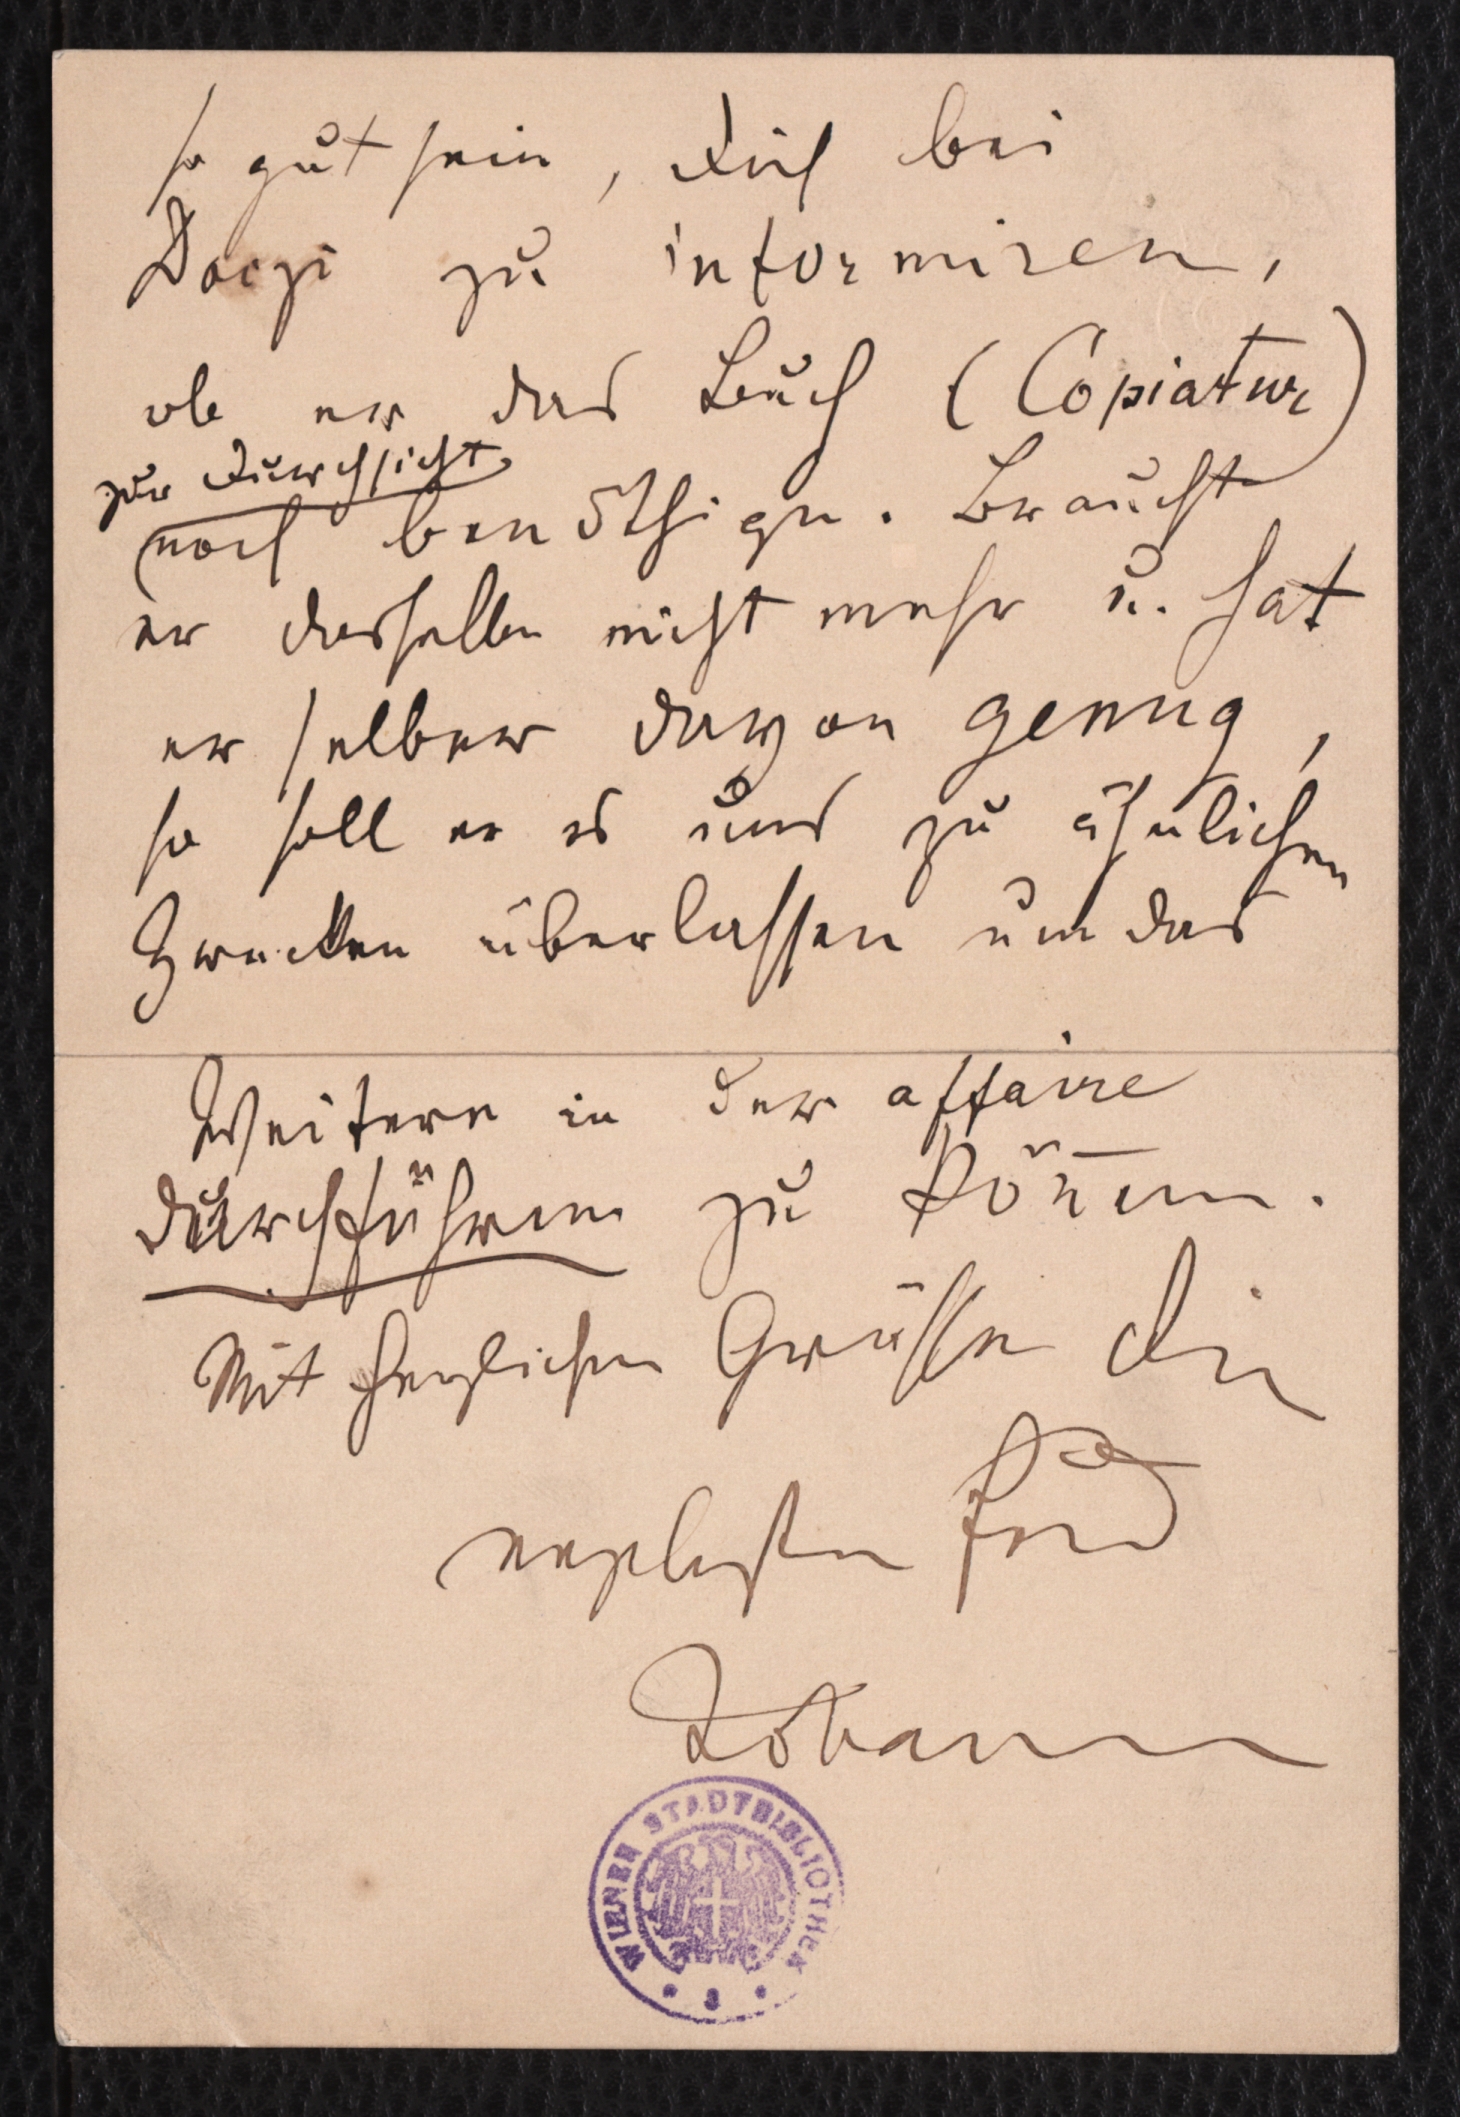 so gut sein, Dich bei
Doczi zu informiren,
ob er das Buch (Copiatur)
zur Durchsicht
noch benöthige. Braucht
er dasselbe nicht mehr u. hat
er selber davon genug,
so soll er es uns zu ähnlichen
Zwecken überlassen um das
Weitere in der affaire
durchführen zu können.
Mit herzlichen Grüßen Dein
Johann
WIENER STADTBIBLIOTHEK